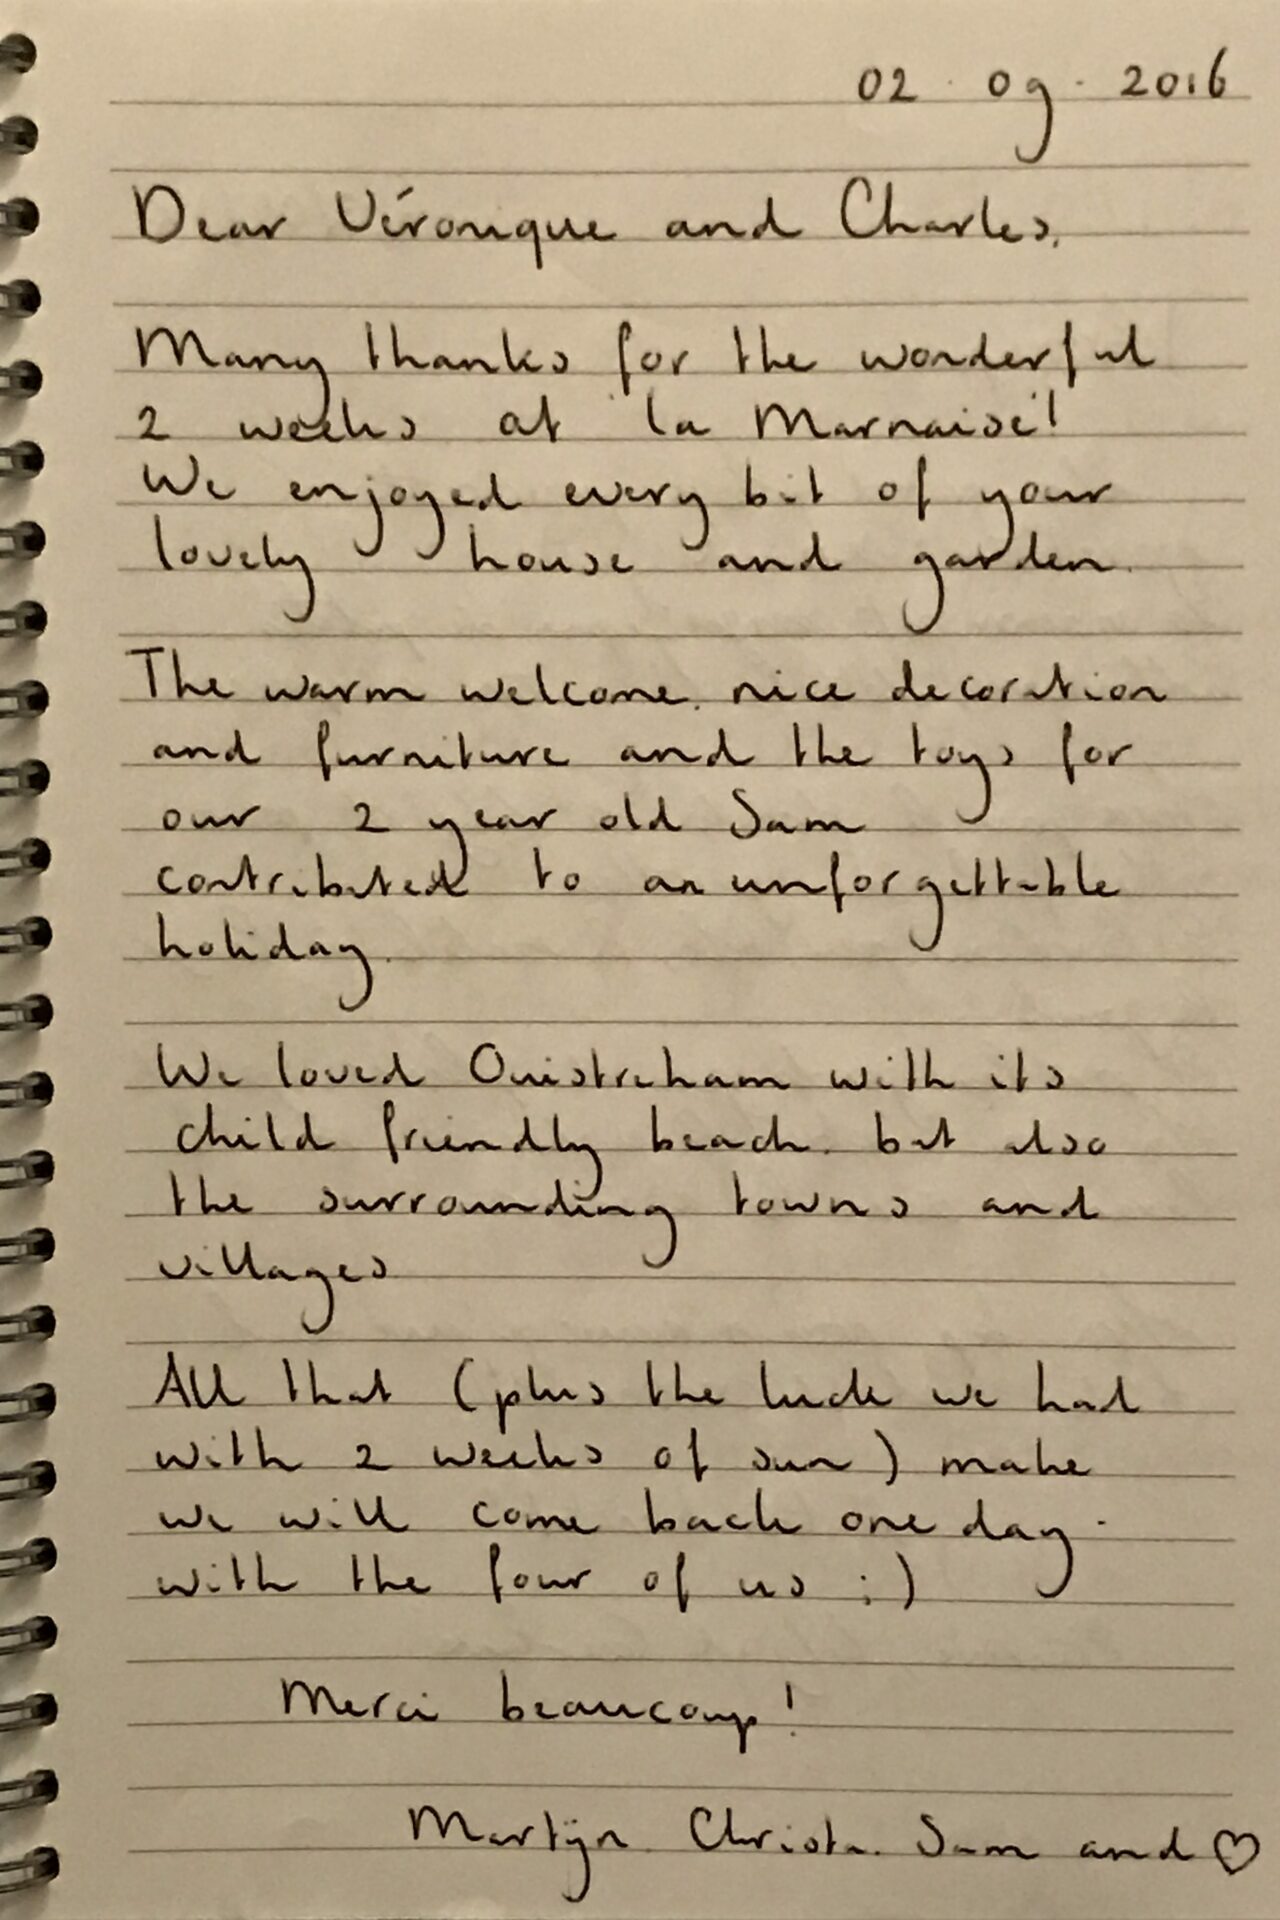 02 · 09 · 2016
Dear Véronique and Charles,
Many thanks for the wonderful
2 weeks at 'la Marnaise'!
We enjoyed every bit of your
lovely house and garden.
The warm welcome, nice decoration
and furniture and the toys for
our 2 year old Sam
contributed to an unforgettable
holiday.
We loved Ouistreham with its
child friendly beach, but also
the surrounding towns and
villages
All that (plus the luck we had
with 2 weeks of sun) make
we will come back one day -
with the four of us :)
Merci beaucoup!
Martijn, Christa, Sam and ♡